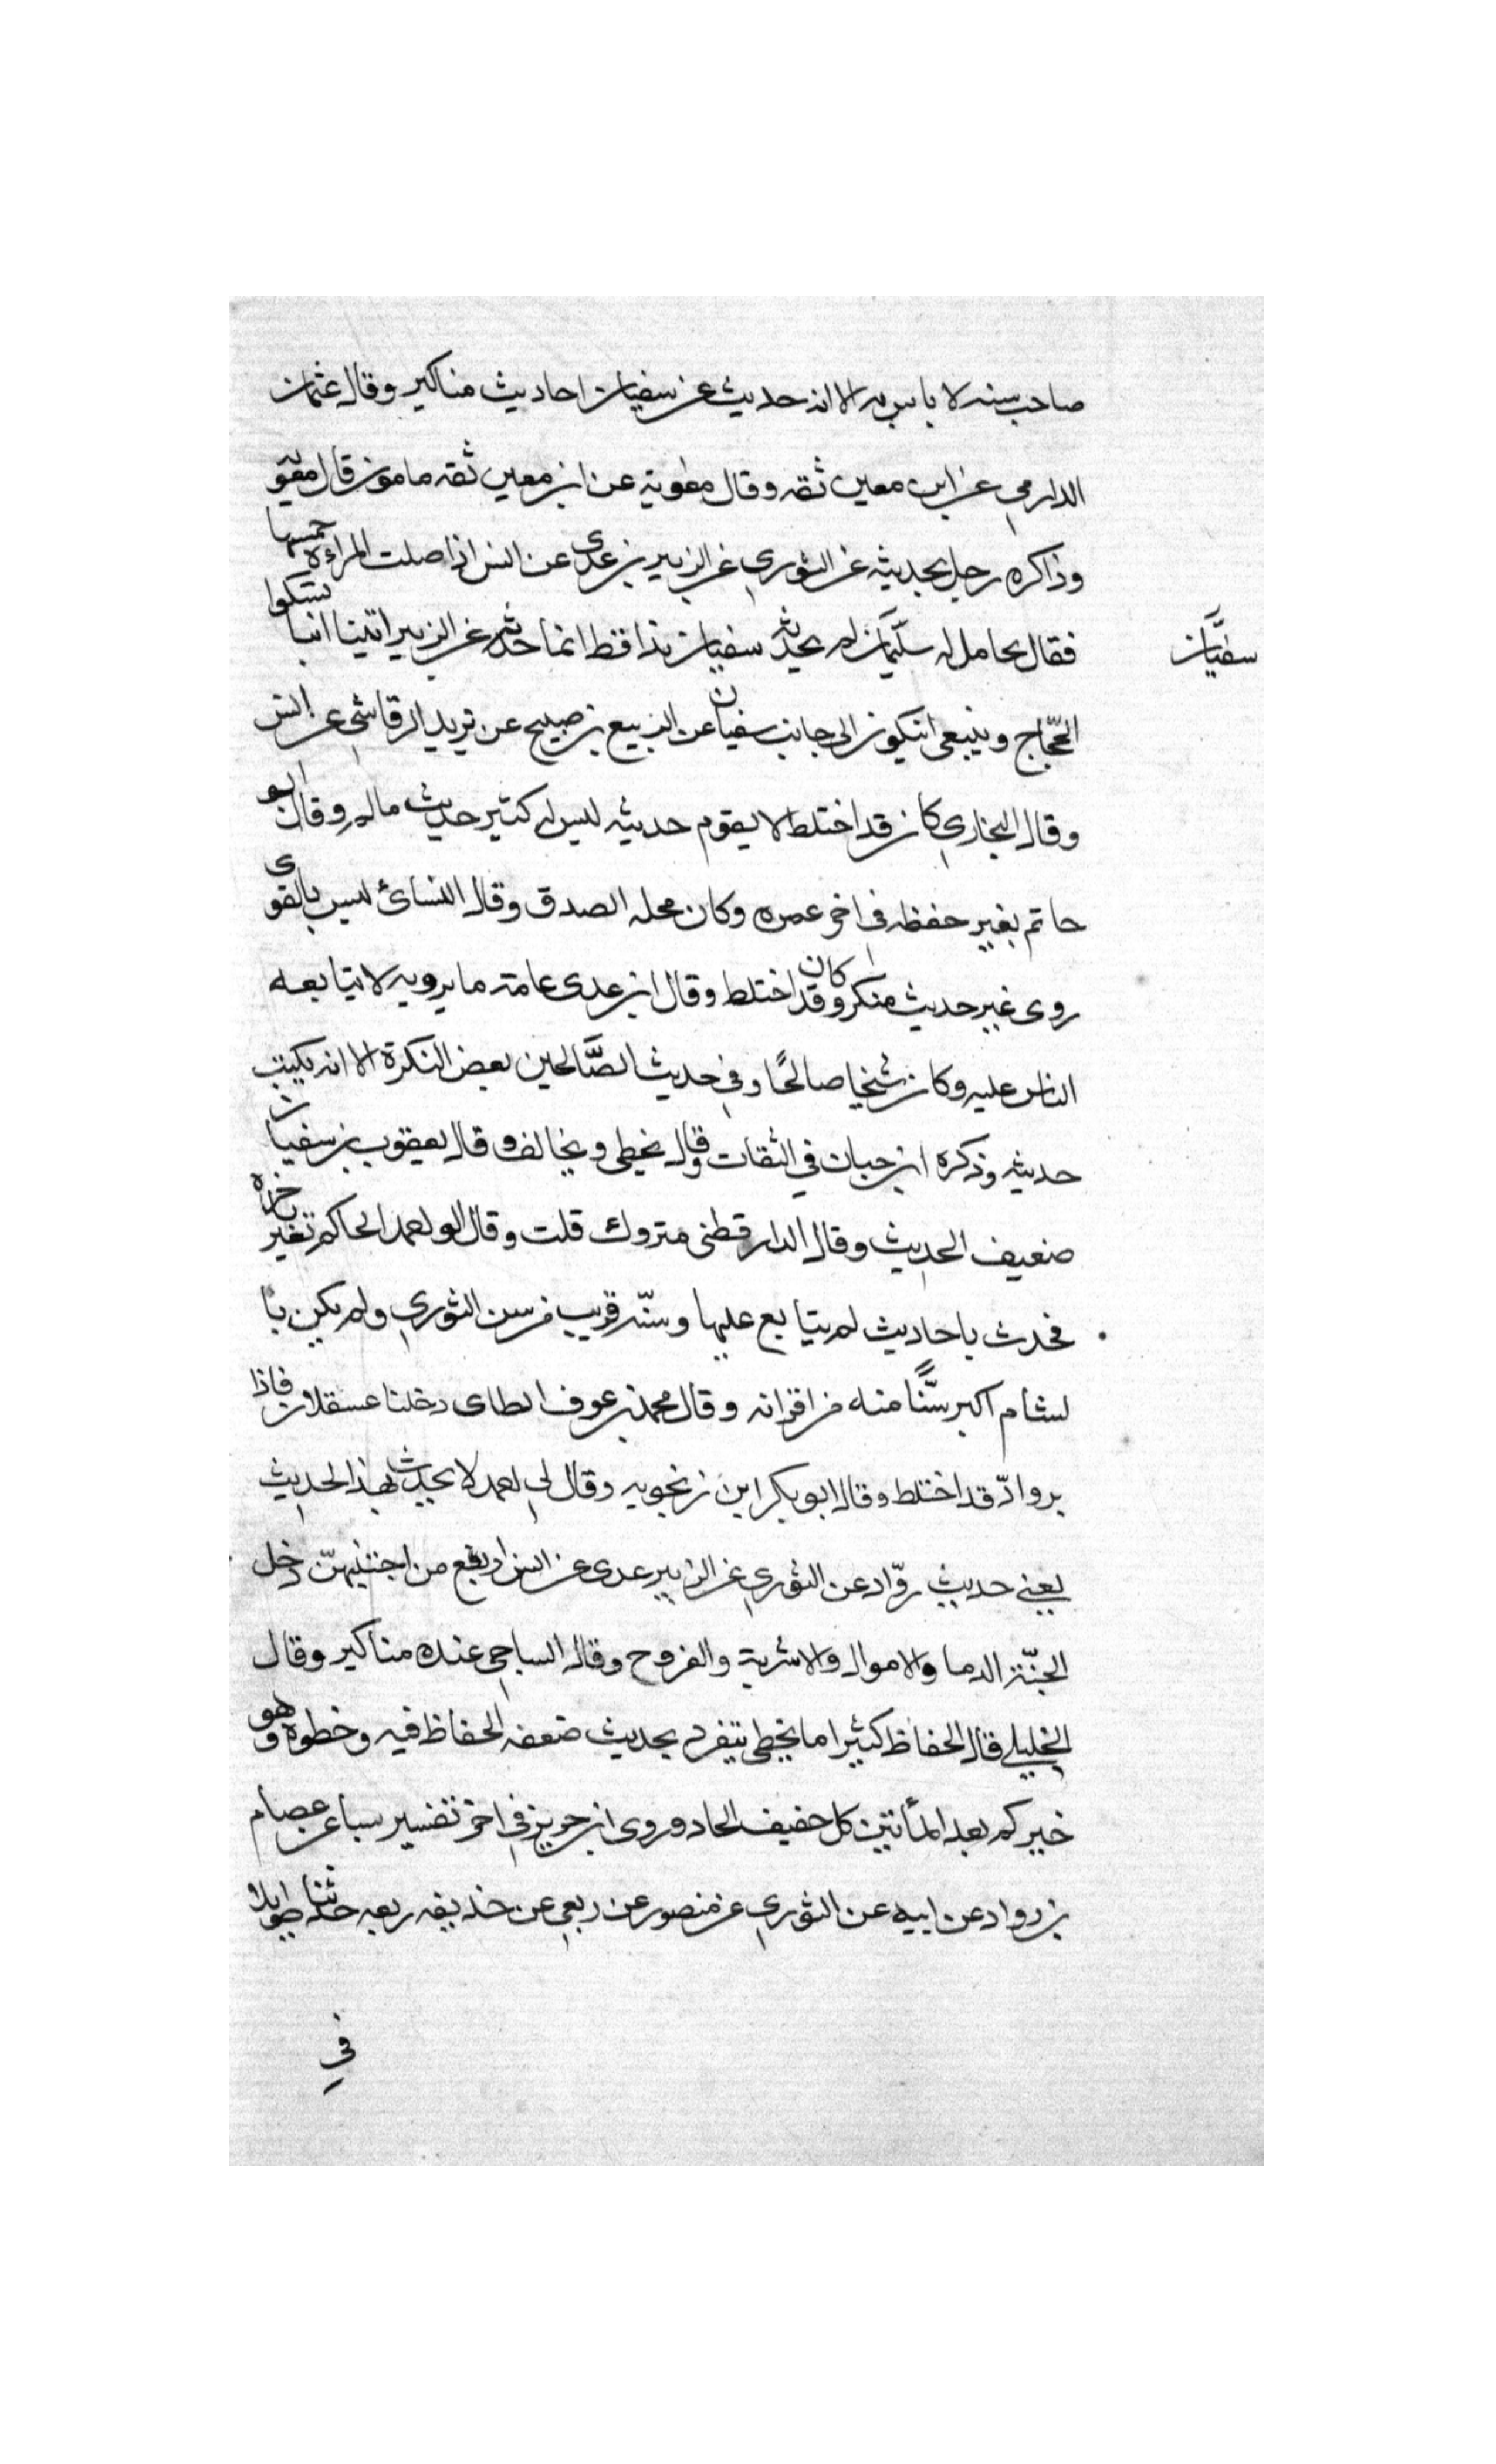 صاحب سنه لا باس به الا انه حديث عن سفيان احاديث مناكير وقال عثمان
الدارمي عن ابن معين ثقه وقال معوية عن ابن معين ثقه مامون قال معو
وذاكره رجل بحديثه عن الثوري عن الزبير بن عدى عن انس اذا صلت المراءة خمسها
فقال يحامل له سليمان لم يحدث سفيان بذا قط انما حدثه عن الزبير اتينا انسا نشكوا
سفيان
الحجاج وينبغى انيكون الى جانب سفيان عن الربيع بن صبيح عن يزيد الرقاشي عن انس
وقال البخاري كان قد اختلط لا يقوم حديثه ليس له كثير حديث ماله وقال ابو
حاتم بغير حفظه في اخر عمره وكان محله الصدق وقال النسائ ليس بالقوى
روى غير حديث منكر وكان قد اختلط وقال ابن عدى عامة ما يرويه لا يتابعه
الناس عليه وكان شيخا صالحًا وفي حديث الصَّالحين بعض النكرة الا انه يكتب
حديثه وذكره ابن حبان في الثقات وقال يخطى ويخالف وقال يعقوب بن سفيان
ضعيف الحديث وقال الدارقطنى متروك قلت وقال الو احمد الحاكم تغير
فحدث باحاديث لم يتابع عليها وسنّه قريب من سن الثوري ولم يكن با
لشام اكبر سنًّا منه من اقرانه وقال محمد بن عوف الطاى دخلنا عسقلان فاذا
بروادّ قد اختلط وقال ابو بكر ابن زنجويه وقال لي احمد لا يحدث بهذا الحديث
يعنى حديث روّاد عن الثوري عن الزبير عدى عن انس اربع من اجتنبهنّ دخل
الجنّة الدما والاموال والاشربة والفروح وقال الساجى عنده مناكير وقال
الخليلي قال الحفاظ كثيرا ما يخطى يتفرد بحديث ضعفه الحفاظ فيه وخطوه وهو
خيركم بعد المأتين كل خفيف الحاد وروى ابن جرير في اخر تفسير سبا عن عصام
بن رواد عن ابيه عن الثوري عن منصور عن ربعي عن حذيفه ربعه حدثنا طويلا
في